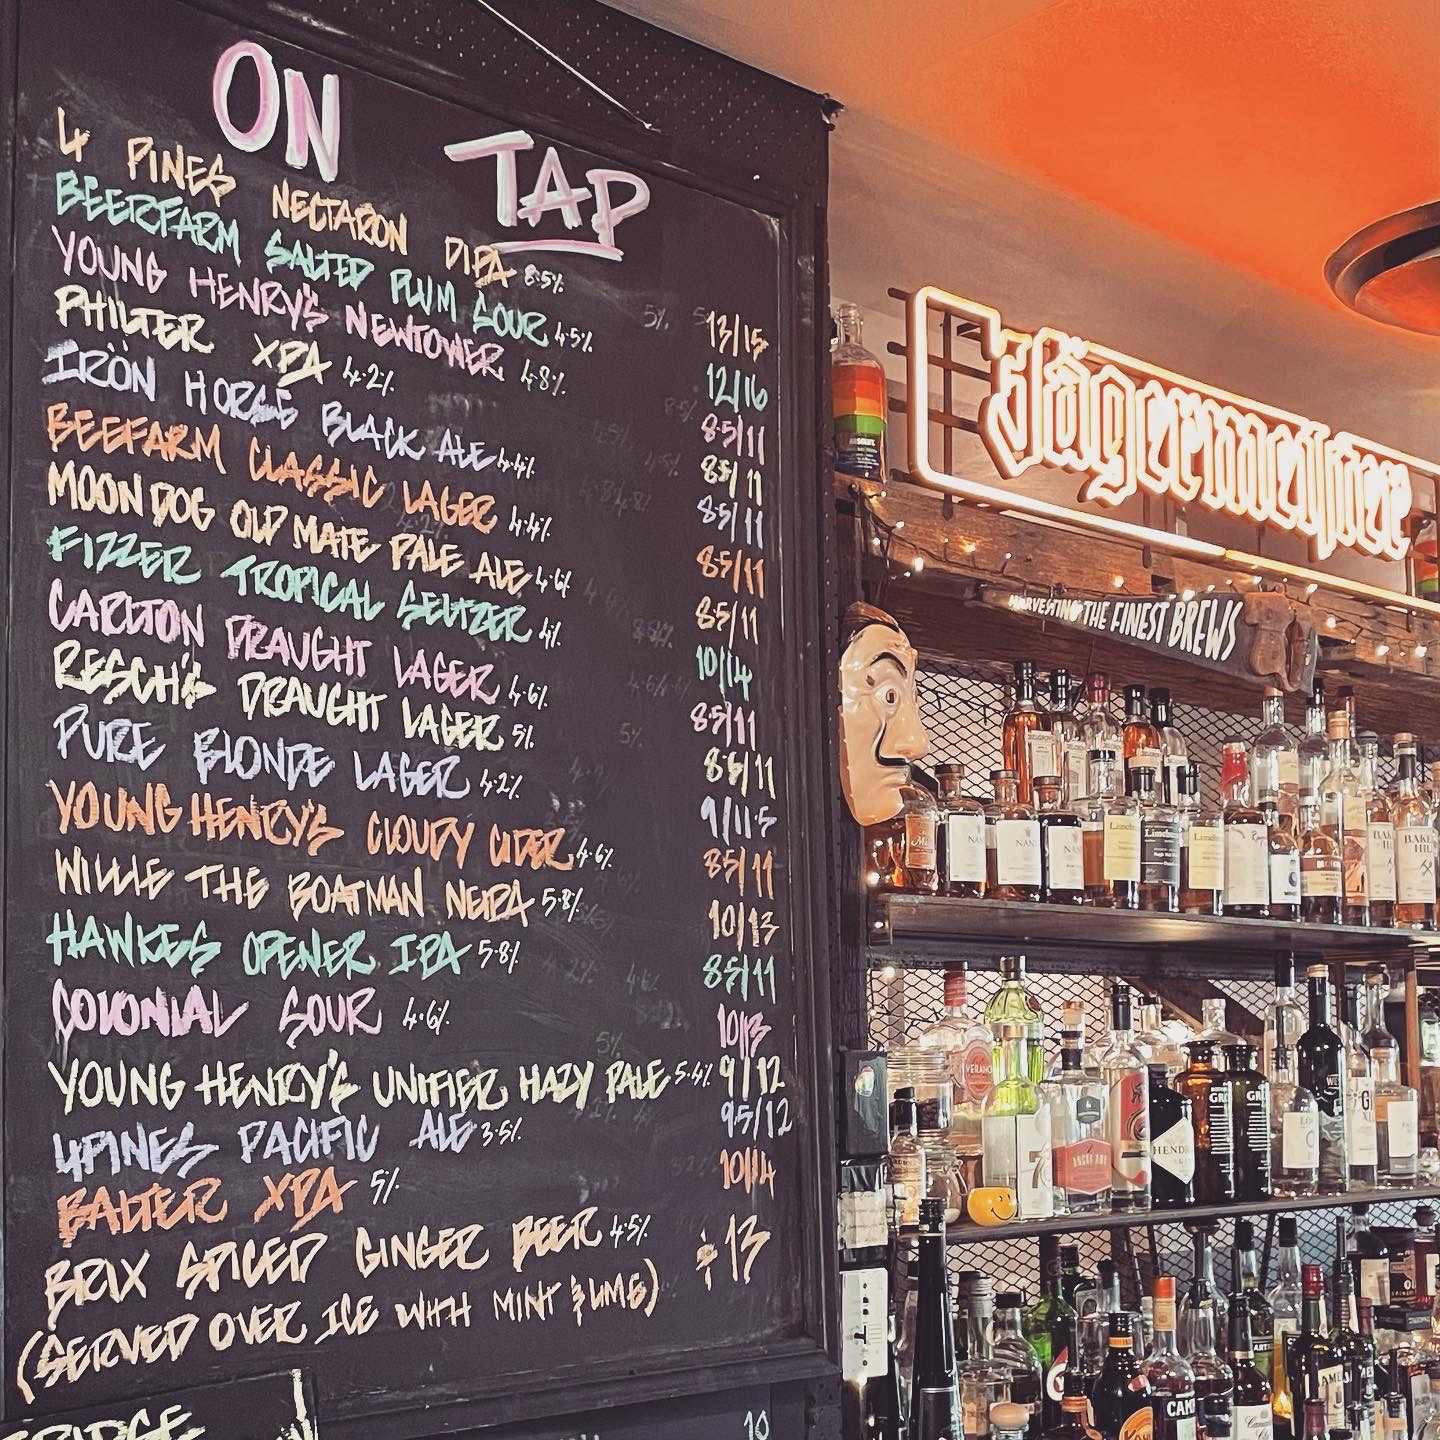 ON TAP
4 PINES NECTARON DIPA 8.5% 13/15
BEERFARM SALTED PLUM SOUR 4.5% 12/16
YOUNG HENRY'S NEWTOWNER 4.8% 8.5/11
PHILTER XPA 4.2% 8.5/11
IRÖN HORSE BLACK ALE 4.4% 8.5/11
BEEFARM CLASSIC LAGER 4.4% 8.5/11
MOONDOG OLD MATE PALE ALE 4.6% 8.5/11
FIZZER TROPICAL SELTZER 4% 10/14
CARLTON DRAUGHT LAGER 4.6% 8.5/11
RESCH'S DRAUGHT LAGER 5% 8.5/11
PURE BLONDE LAGER 4.2% 9/11.5
YOUNG HENRY'S CLOUDY CIDER 4.6% 8.5/11
WILLIE THE BOATMAN NEIPA 5.8% 10/13
HAWKES OPENER IPA 5.8% 8.5/11
COLONIAL SOUR 4.6% 10/13
YOUNG HENRY'S UNIFIER HAZY PALE 5.4% 9/12
4PINES PACIFIC ALE 3.5% 9.5/12
BALTER XPA 5% 10/14
BRIX SPICED GINGER BEER 4.5% $13
(SERVED OVER ICE WITH MINT & LIME)
10
Jägermeister
HARVESTING THE FINEST BREWS
ABSOLUT
VERANO
ANGRY ANT
HEND